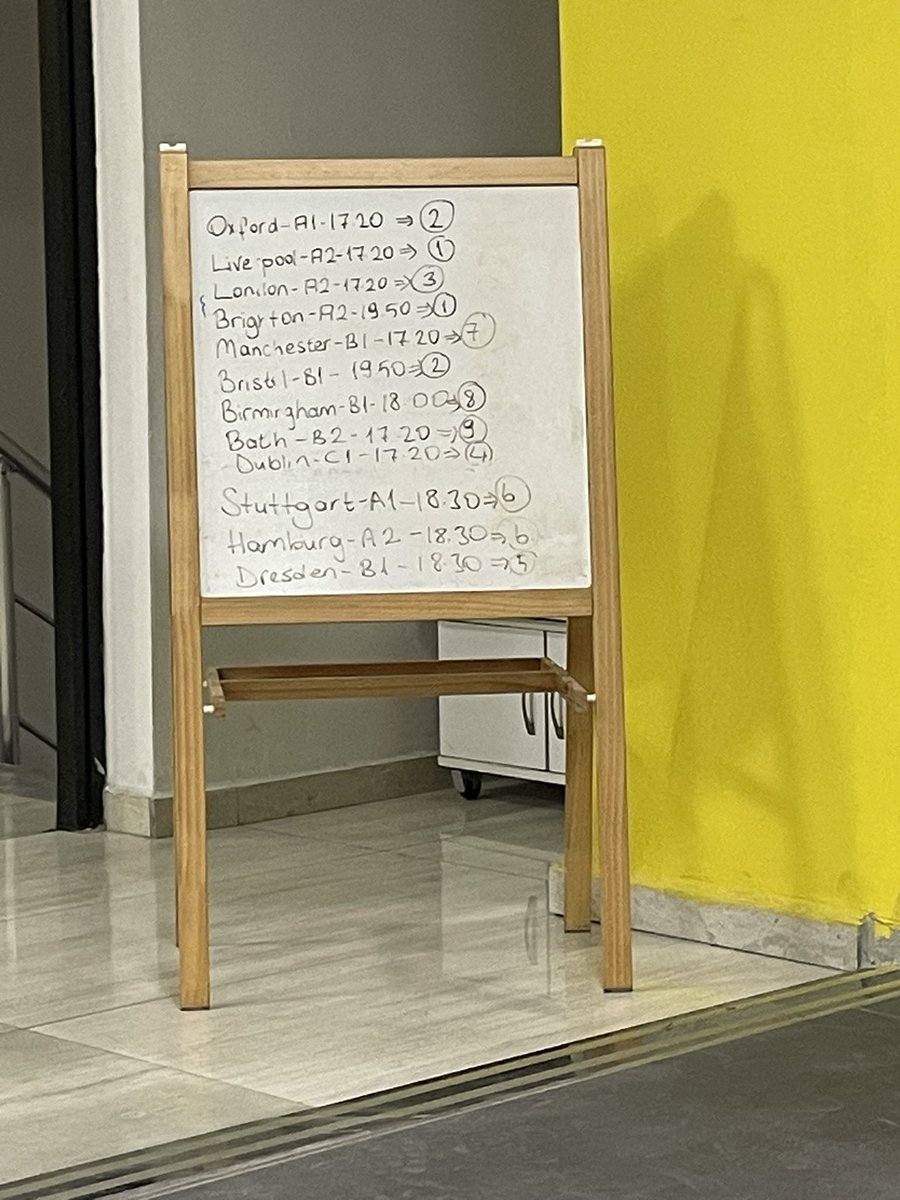 Oxford-A1-17.20 ⇒ 2
Live pool-A2-17.20 ⇒ 1
London-A2-17.20 ⇒ 3
Brigrton-A2-19.50 ⇒ 1
Manchester-B1-17.20 ⇒ 7
Bristol-B1-19.50 ⇒ 2
Birmirgham-B1-18.00 ⇒ 8
Bath-B2-17.20 ⇒ 9
Dublin-C1-17.20 ⇒ 4
Stuttgart-A1-18.30 ⇒ 6
Hamburg-A2-18.30 ⇒ 6
Dresden-B1-18.30 ⇒ 5